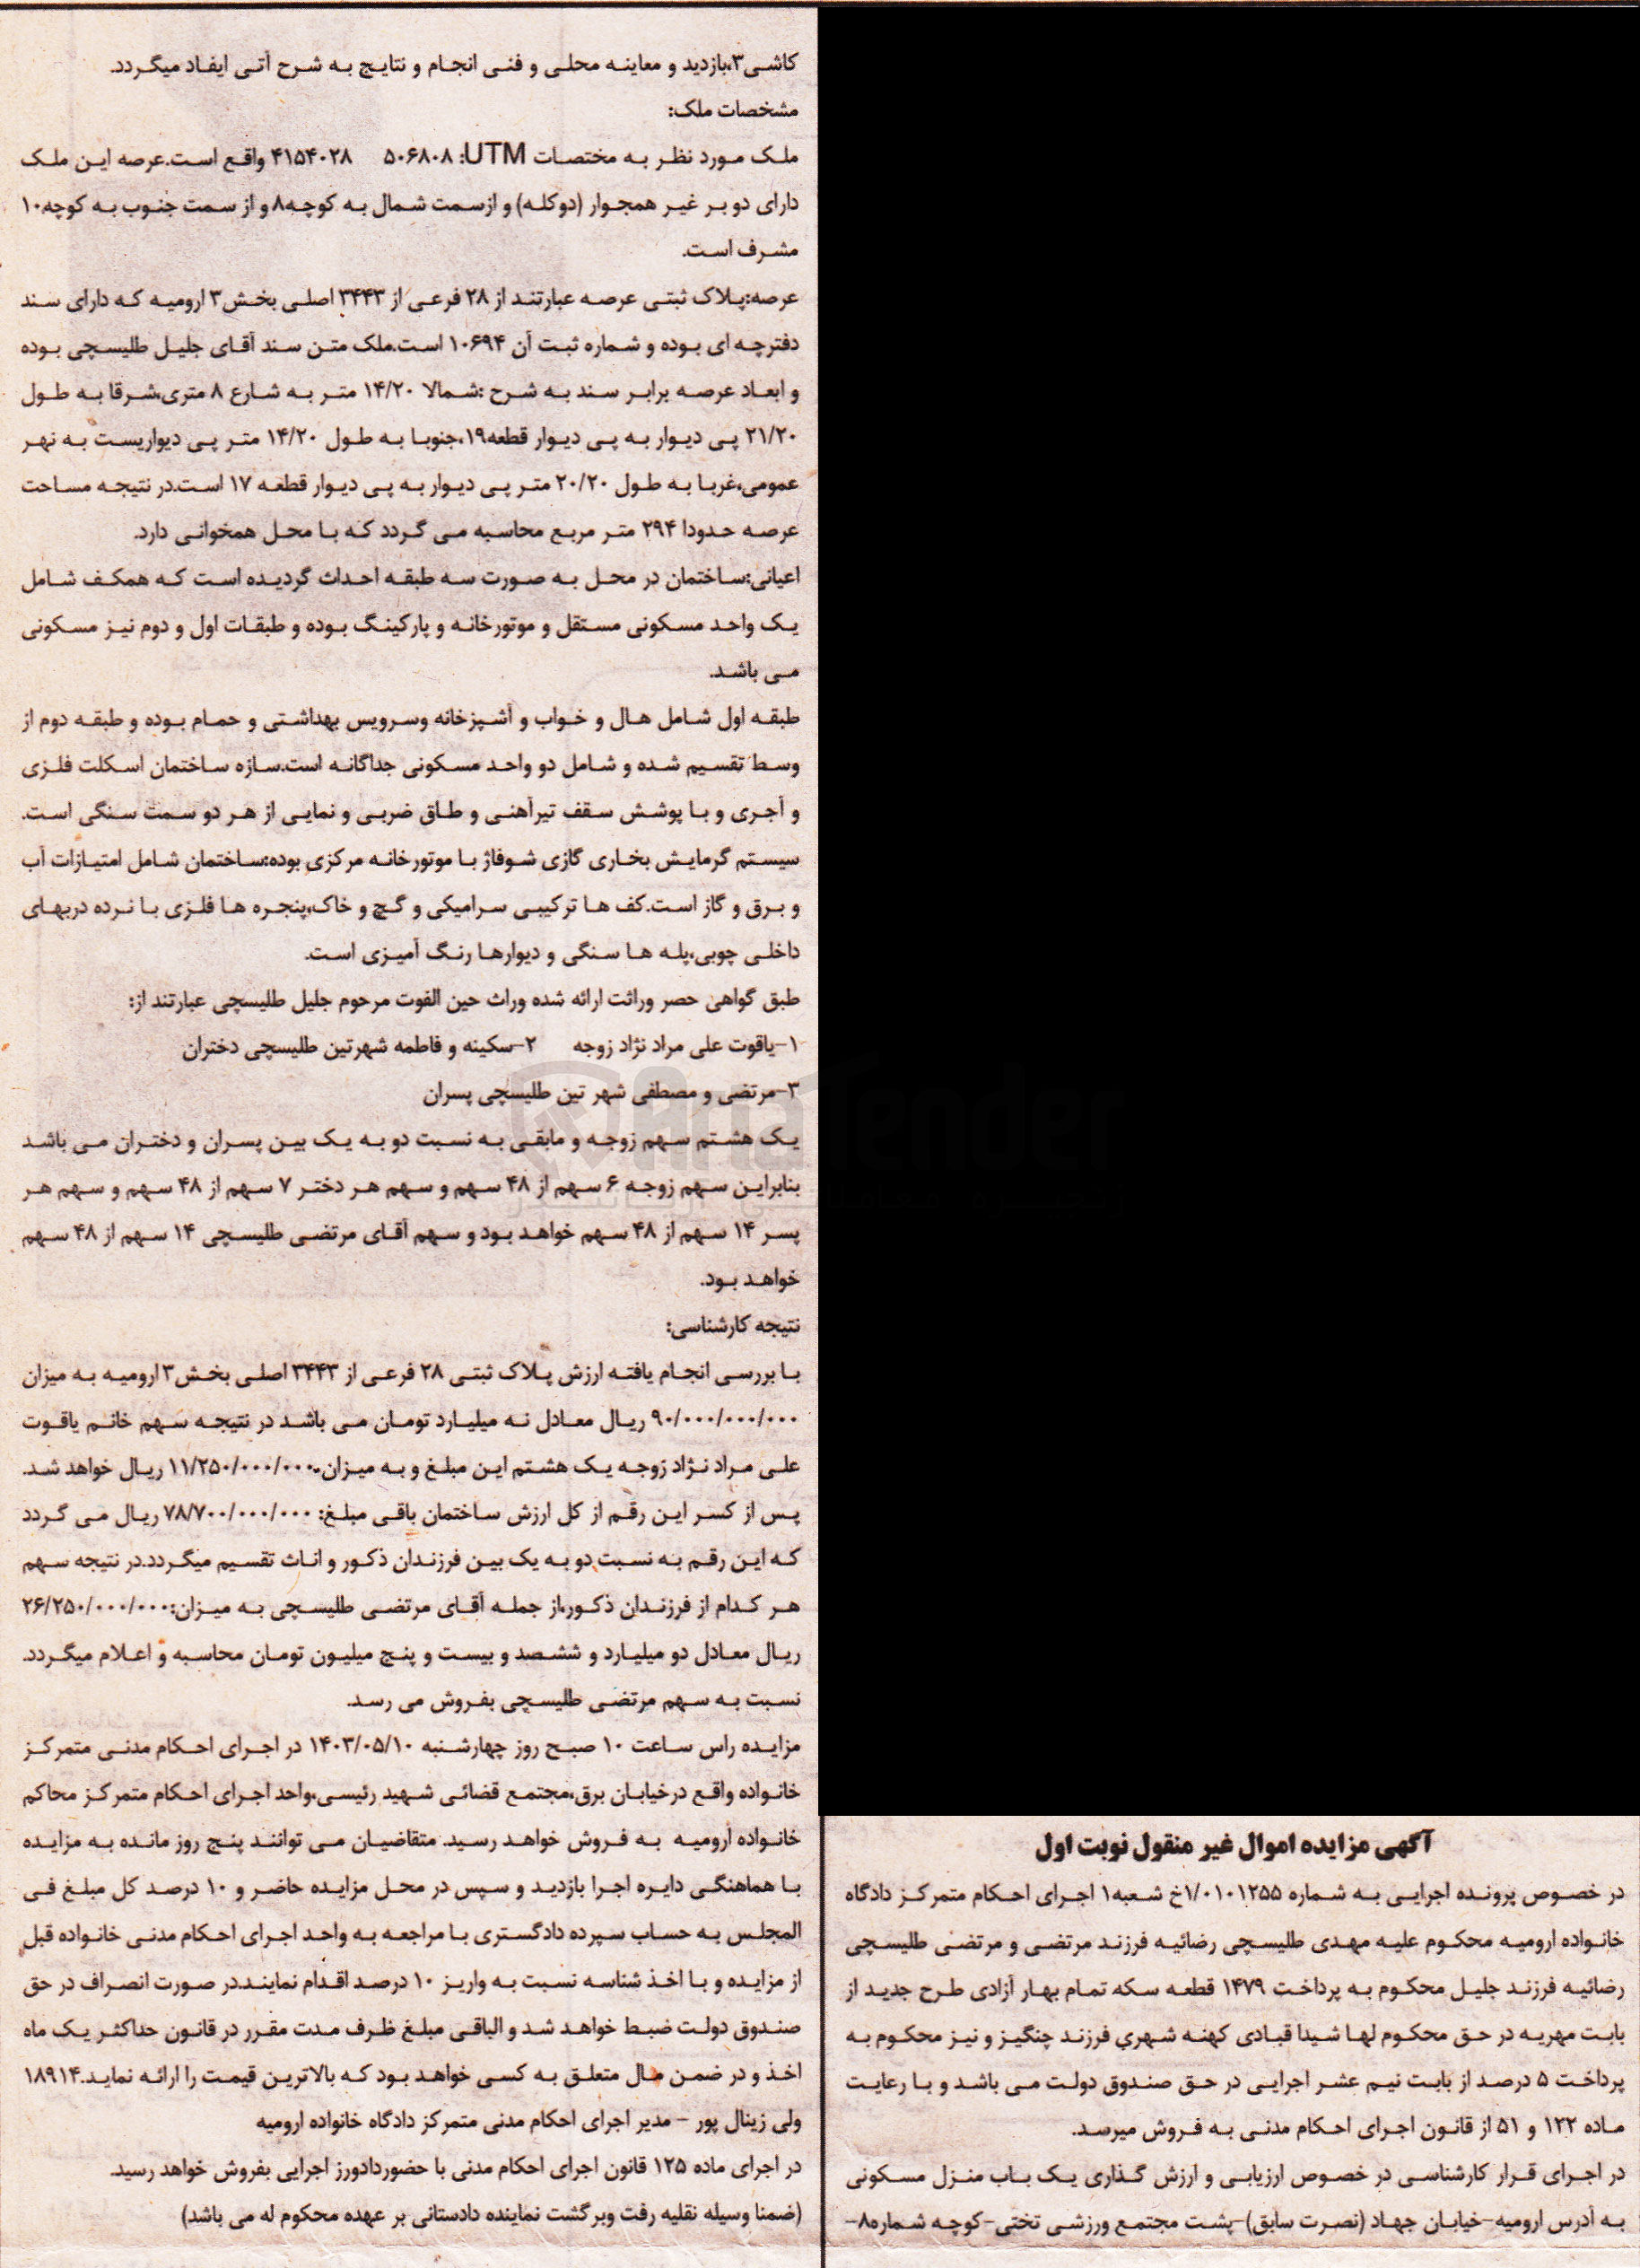 آگهی مزایده اموال غیر منقول نوبت اول
در خصوص پرونده اجرایی به شماره ۱/۰۱۰۱۲۵۵خ شعبه۱ اجرای احکام متمرکز دادگاه
خانواده ارومیه محکوم علیه مهدی طلیسچی رضائیه فرزند مرتضی و مرتضی طلیسچی
رضائیه فرزند جلیل محکوم به پرداخت ۱۴۷۹ قطعه سکه تمام بهار آزادی طرح جدید از
بابت مهریه در حق محکوم لها شیدا قبادی کهنه شهری فرزند چنگیز و نیز محکوم به
پرداخت ۵ درصد از بابت نیم عشر اجرایی در حق صندوق دولت می باشد و با رعایت
ماده ۱۲۲ و ۵۱ از قانون اجرای احکام مدنی به فروش میرسد.
در اجرای قرار کارشناسی در خصوص ارزیابی و ارزش گذاری یک باب منزل مسکونی
به آدرس ارومیه-خیابان جهاد (نصرت سابق)-پشت مجتمع ورزشی تختی-کوچه شماره۸-
کاشی۳،بازدید و معاینه محلی و فنی انجام و نتایج به شرح آتی ایفاد میگردد.
مشخصات ملک:
ملک مورد نظر به مختصات UTM: ۵۰۶۸۰۸ ۴۱۵۴۰۲۸ واقع است.عرصه این ملک
دارای دو بر غیر همجوار (دوکله) و ازسمت شمال به کوچه۸ و از سمت جنوب به کوچه۱۰
مشرف است.
عرصه:پلاک ثبتی عرصه عبارتند از ۲۸ فرعی از ۳۴۴۳ اصلی بخش۳ ارومیه که دارای سند
دفترچه ای بوده و شماره ثبت آن ۱۰۶۹۴ است.ملک متن سند آقای جلیل طلیسچی بوده
و ابعاد عرصه برابر سند به شرح :شمالا ۱۴/۲۰ متر به شارع ۸ متری،شرقا به طول
۲۱/۲۰ پی دیوار به پی دیوار قطعه۱۹،جنوبا به طول ۱۴/۲۰ متر پی دیواریست به نهر
عمومی،غربا به طول ۲۰/۲۰ متر پی دیوار به پی دیوار قطعه ۱۷ است.در نتیجه مساحت
عرصه حدودا ۲۹۴ متر مربع محاسبه می گردد که با محل همخوانی دارد.
اعیانی:ساختمان در محل به صورت سه طبقه احداث گردیده است که همکف شامل
یک واحد مسکونی مستقل و موتورخانه و پارکینگ بوده و طبقات اول و دوم نیز مسکونی
می باشد.
طبقه اول شامل هال و خواب و آشپزخانه وسرویس بهداشتی و حمام بوده و طبقه دوم از
وسط تقسیم شده و شامل دو واحد مسکونی جداگانه است.سازه ساختمان اسکلت فلزی
و آجری و با پوشش سقف تیرآهنی و طاق ضربی و نمایی از هر دو سمت سنگی است.
سیستم گرمایش بخاری گازی شوفاژ با موتورخانه مرکزی بوده:ساختمان شامل امتیازات آب
و برق و گاز است.کف ها ترکیبی سرامیکی و گچ و خاک،پنجره ها فلزی با نرده دربهای
داخلی چوبی،پله ها سنگی و دیوارها رنگ آمیزی است.
طبق گواهی حصر وراثت ارائه شده وراث حین الفوت مرحوم جلیل طلیسچی عبارتند از:
۱-یاقوت علی مراد نژاد زوجه ۲-سکینه و فاطمه شهرتین طلیسچی دختران
۳-مرتضی و مصطفی شهر تین طلیسچی پسران
یک هشتم سهم زوجه و مابقی به نسبت دو به یک بین پسران و دختران می باشد
بنابراین سهم زوجه ۶ سهم از ۴۸ سهم و سهم هر دختر ۷ سهم از ۴۸ سهم و سهم هر
پسر ۱۴ سهم از ۴۸ سهم خواهد بود و سهم آقای مرتضی طلیسچی ۱۴ سهم از ۴۸ سهم
خواهد بود.
نتیجه کارشناسی:
با بررسی انجام یافته ارزش پلاک ثبتی ۲۸ فرعی از ۳۴۴۳ اصلی بخش۳ ارومیه به میزان
۹۰/۰۰۰/۰۰۰/۰۰۰ ریال معادل نه میلیارد تومان می باشد در نتیجه سهم خانم یاقوت
علی مراد نژاد زوجه یک هشتم این مبلغ و به میزان۱۱/۲۵۰/۰۰۰/۰۰۰ ریال خواهد شد.
پس از کسر این رقم از کل ارزش ساختمان باقی مبلغ: ۷۸/۷۰۰/۰۰۰/۰۰۰ ریال می گردد
که این رقم به نسبت دو به یک بین فرزندان ذکور و اناث تقسیم میگردد.در نتیجه سهم
هر کدام از فرزندان ذکور،از جمله آقای مرتضی طلیسچی به میزان:۲۶/۲۵۰/۰۰۰/۰۰۰
ریال معادل دو میلیارد و ششصد و بیست و پنج میلیون تومان محاسبه و اعلام میگردد.
نسبت به سهم مرتضی طلیسچی بفروش می رسد.
مزایده راس ساعت ۱۰ صبح روز چهارشنبه ۱۴۰۳/۰۵/۱۰ در اجرای احکام مدنی متمرکز
خانواده واقع درخیابان برق،مجتمع قضائی شهید رئیسی،واحد اجرای احکام متمرکز محاکم
خانواده ارومیه به فروش خواهد رسید. متقاضیان می توانند پنج روز مانده به مزایده
با هماهنگی دایره اجرا بازدید و سپس در محل مزایده حاضر و ۱۰ درصد کل مبلغ فی
المجلس به حساب سپرده دادگستری با مراجعه به واحد اجرای احکام مدنی خانواده قبل
از مزایده و با اخذ شناسه نسبت به واریز ۱۰ درصد اقدام نمایند.در صورت انصراف در حق
صندوق دولت ضبط خواهد شد و الباقی مبلغ ظرف مدت مقرر در قانون حداکثر یک ماه
اخذ و در ضمن مال متعلق به کسی خواهد بود که بالاترین قیمت را ارائه نماید.۱۸۹۱۴
ولی زینال پور - مدیر اجرای احکام مدنی متمرکز دادگاه خانواده ارومیه
در اجرای ماده ۱۲۵ قانون اجرای احکام مدنی با حضوردادورز اجرایی بفروش خواهد رسید.
(ضمنا وسیله نقلیه رفت وبرگشت نماینده دادستانی بر عهده محکوم له می باشد)
AriaTender